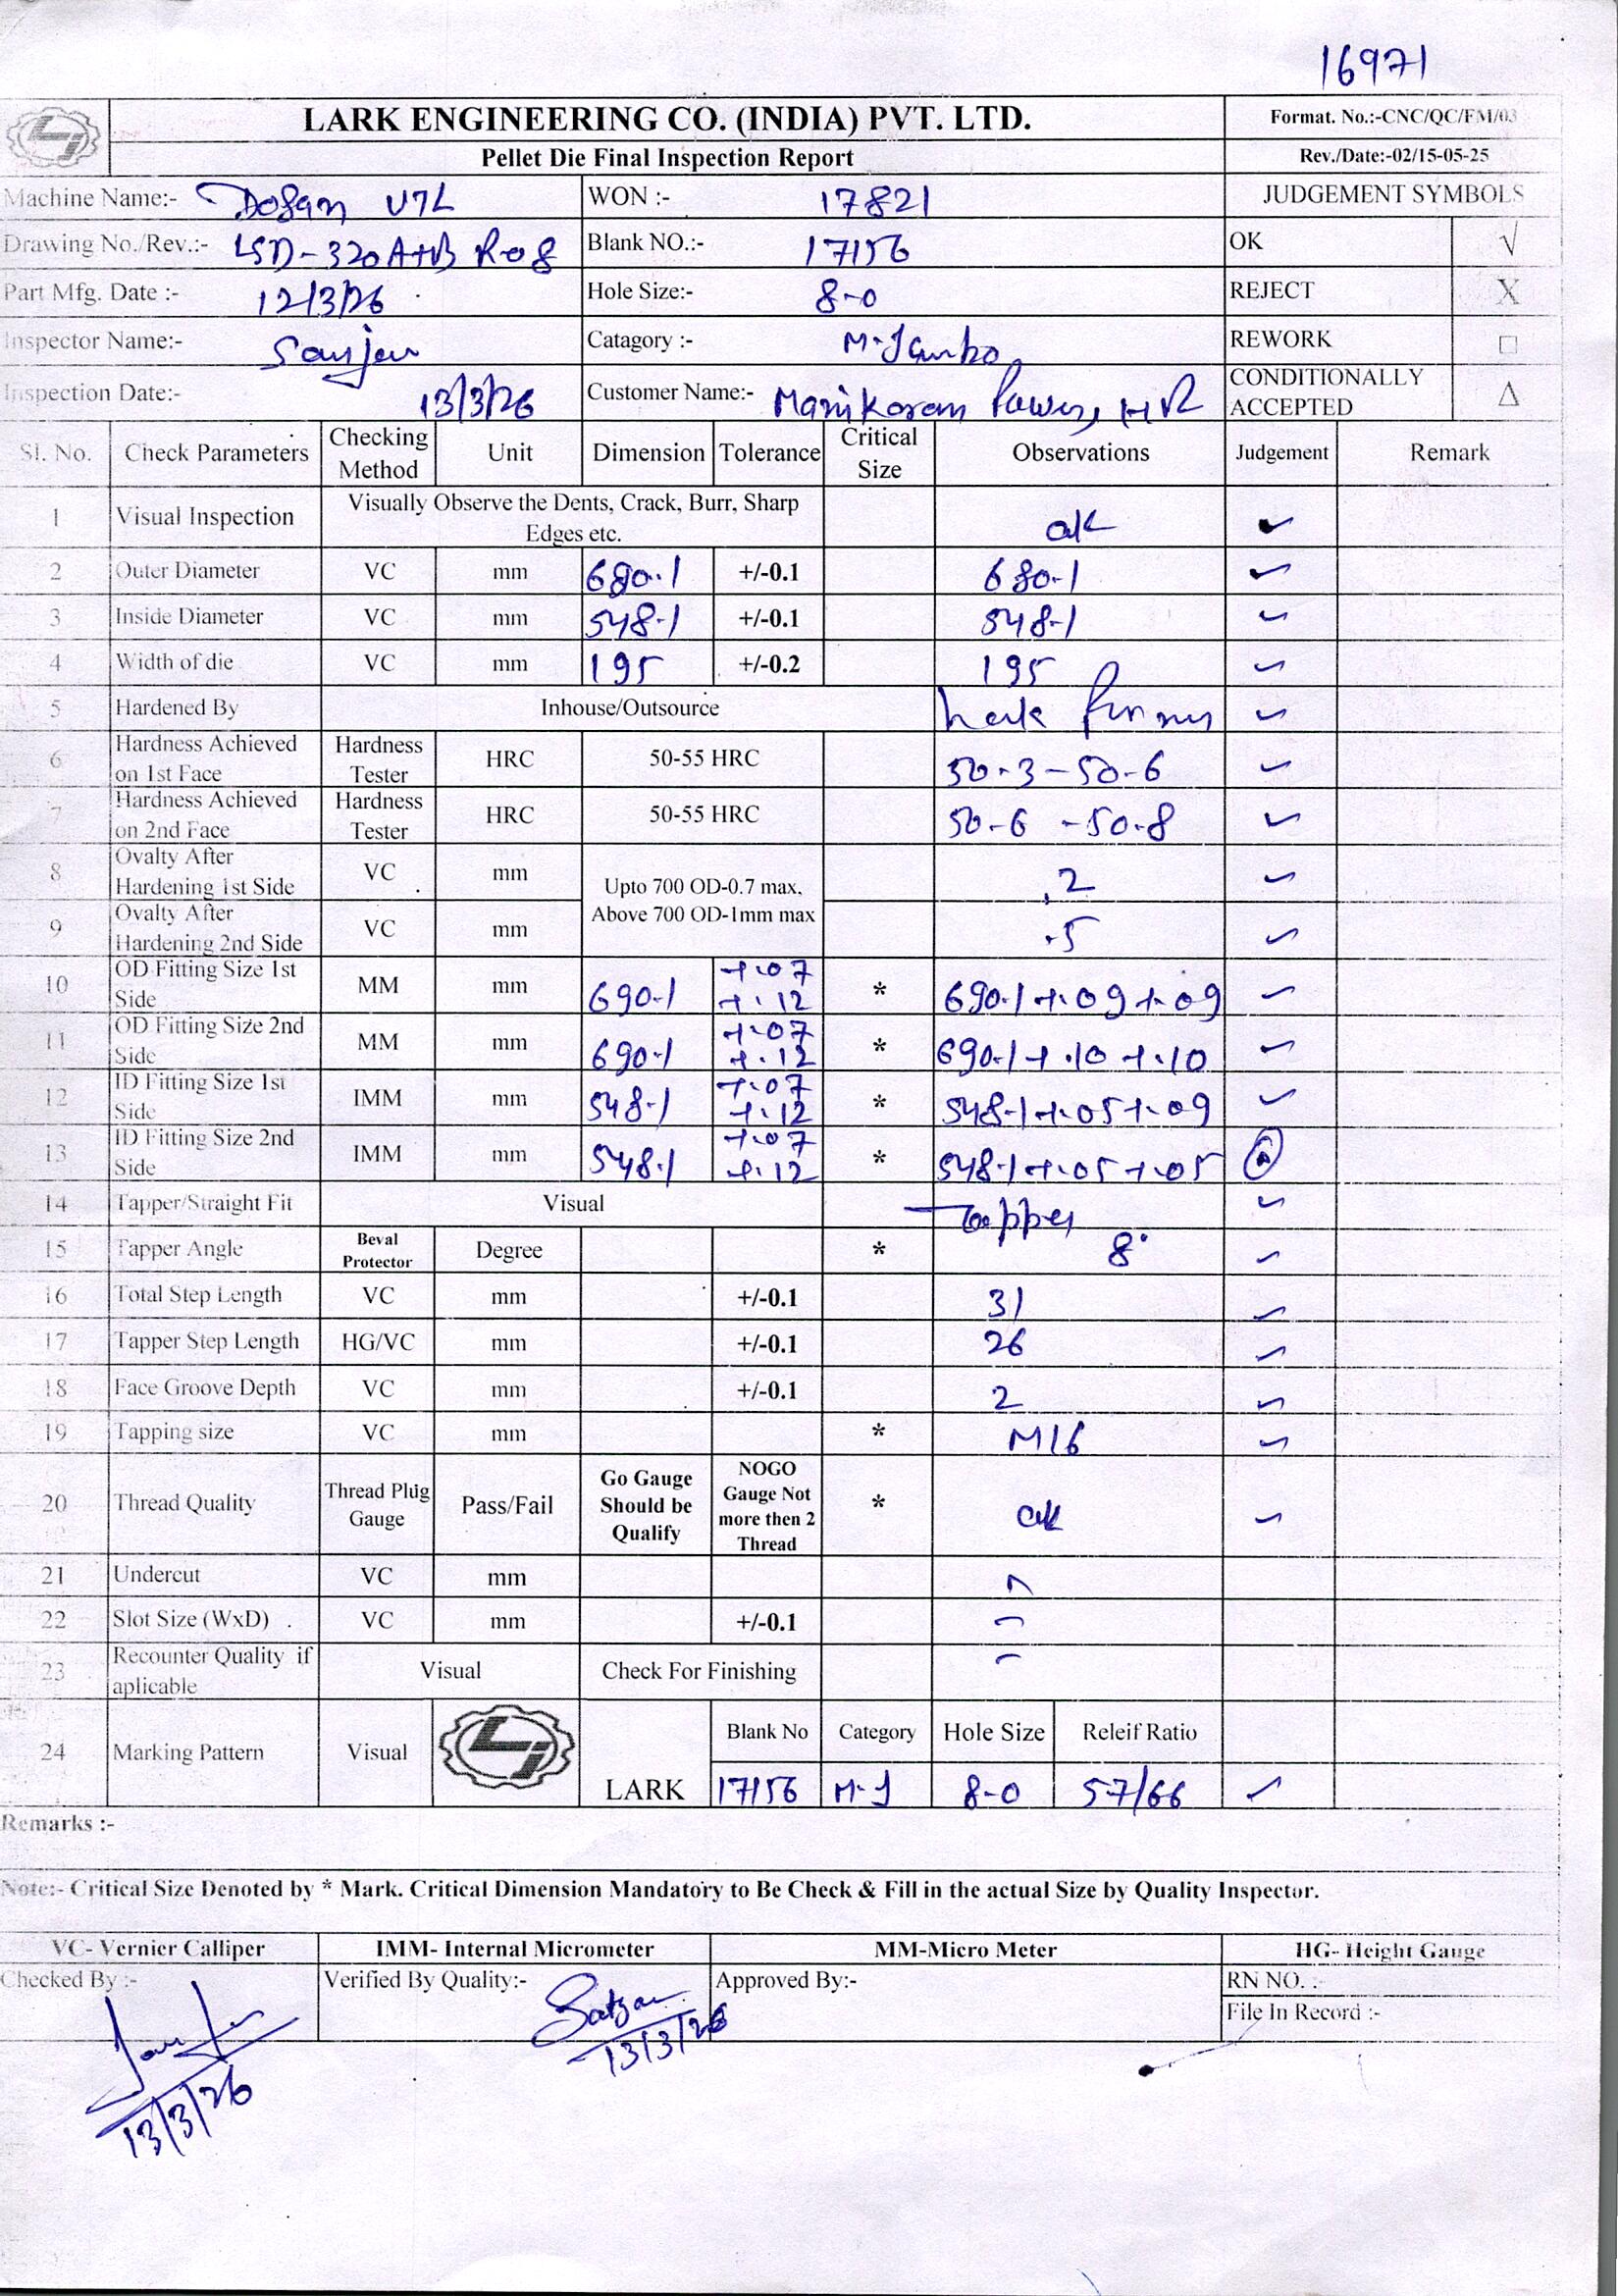 16971
LARK ENGINEERING CO. (INDIA) PVT. LTD.
Format. No.:-CNC/QC/FM/03
Pellet Die Final Inspection Report
Rev./Date:-02/15-05-25
Machine Name:- Dosan VTL WON :- 17821 JUDGEMENT SYMBOLS
Drawing No./Rev.:- LSD-320A+B R08 Blank NO.:- 17156 OK √
Part Mfg. Date :- 12/3/26 Hole Size:- 8-0 REJECT X
Inspector Name:- Sanjeev Catagory :- M-Jambo REWORK □
Inspection Date:- 13/3/26 Customer Name:- Manikaran Power, HR CONDITIONALLY ACCEPTED Δ
Sl. No. Check Parameters Checking Method Unit Dimension Tolerance Critical Size Observations Judgement Remark
1 Visual Inspection Visually Observe the Dents, Crack, Burr, Sharp Edges etc. ok ✓
2 Outer Diameter VC mm 680.1 +/-0.1 680.1 ✓
3 Inside Diameter VC mm 548.1 +/-0.1 548.1 ✓
4 Width of die VC mm 195 +/-0.2 195 ✓
5 Hardened By Inhouse/Outsource Lark ✓
6 Hardness Achieved on 1st Face Hardness Tester HRC 50-55 HRC 50.3-50.6 ✓
7 Hardness Achieved on 2nd Face Hardness Tester HRC 50-55 HRC 50.6-50.8 ✓
8 Ovalty After Hardening 1st Side VC mm Upto 700 OD-0.7 max, Above 700 OD-1mm max .2 ✓
9 Ovalty After Hardening 2nd Side VC mm .5 ✓
10 OD Fitting Size 1st Side MM mm 690.1 +.07 +.12 * 690.1+.09+.09 ✓
11 OD Fitting Size 2nd Side MM mm 690.1 +.07 +.12 * 690.1+.10+.10 ✓
12 ID Fitting Size 1st Side IMM mm 548.1 +.07 +.12 * 548.1+.05+.09 ✓
13 ID Fitting Size 2nd Side IMM mm 548.1 +.07 +.12 * 548.1+.05+.05
14 Tapper/Straight Fit Visual Tapper ✓
15 Tapper Angle Beval Protector Degree * 8° ✓
16 Total Step Length VC mm +/-0.1 31 ✓
17 Tapper Step Length HG/VC mm +/-0.1 26 ✓
18 Face Groove Depth VC mm +/-0.1 2 ✓
19 Tapping size VC mm * M16 ✓
20 Thread Quality Thread Plug Gauge Pass/Fail Go Gauge Should be Qualify NOGO Gauge Not more then 2 Thread * ok ✓
21 Undercut VC mm
22 Slot Size (WxD) VC mm +/-0.1 -
23 Recounter Quality if aplicable Visual Check For Finishing -
24 Marking Pattern Visual LARK Blank No Category Hole Size Releif Ratio
17156 M-J 8-0 57/66 ✓
Remarks :-
Note:- Critical Size Denoted by * Mark. Critical Dimension Mandatory to Be Check & Fill in the actual Size by Quality Inspector.
VC- Vernier Calliper IMM- Internal Micrometer MM-Micro Meter HG- Height Gauge
Checked By :- Verified By Quality:- Approved By:- RN NO. :-
File In Record :-
13/3/26 13/3/26